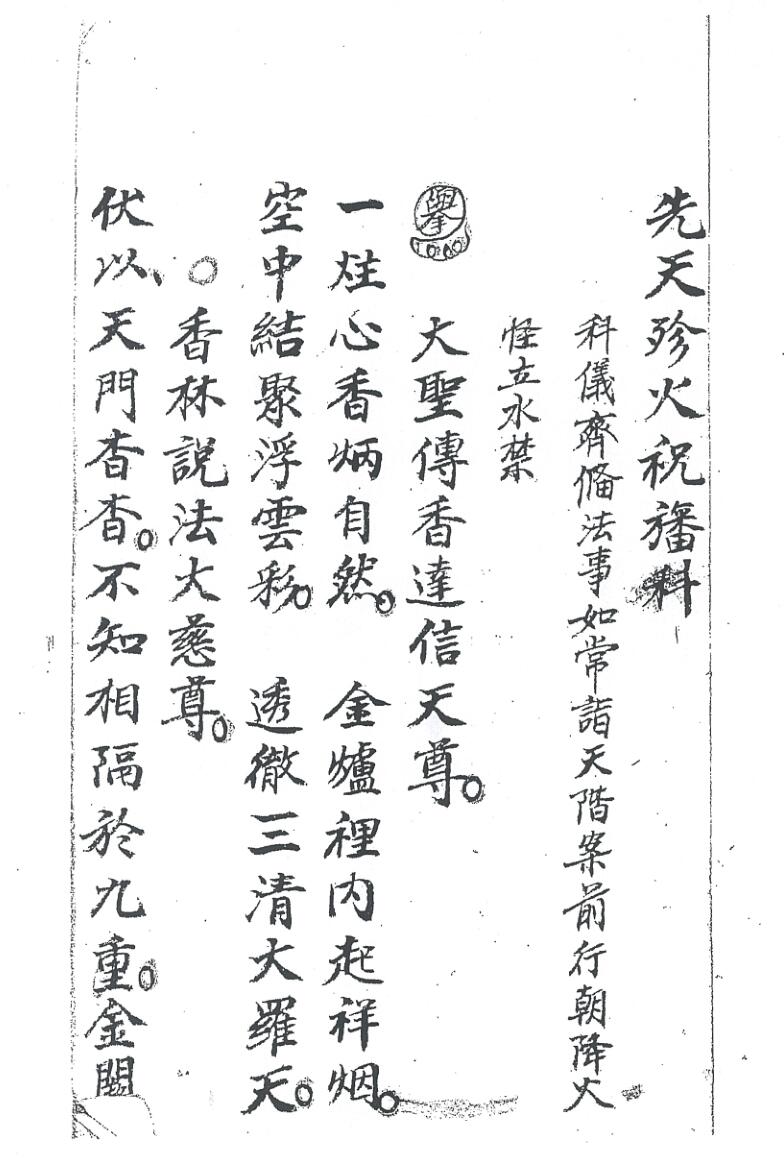 先天殄火祝旛科
科儀齊備法事如常詣天階案前行朝降火
怪立水禁
舉 大聖傳香達信天尊。
一炷心香炳自然。 金爐裡內起祥烟。
空中結聚浮雲彩。 透徹三清大羅天。
○香林說法大慈尊。
伏以、天門杳杳。不知相隔於九重。金闕